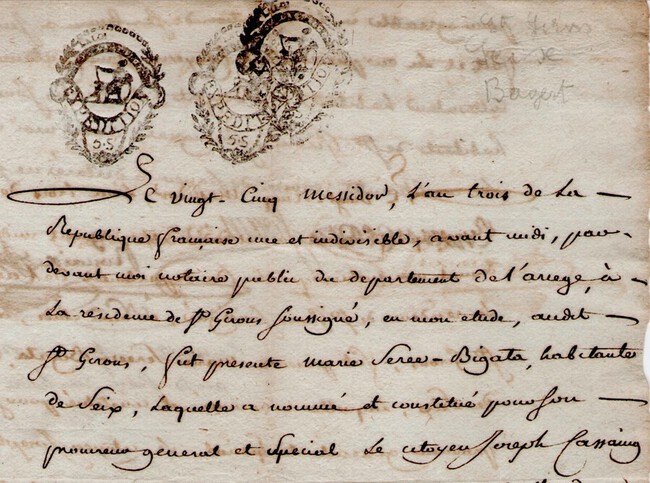 LA LOI
EXPEDITION
5.S
EXPEDITION
5.S
Bagert
Le vingt-Cinq Messidor, L'an trois de La
Republique française une et indivisible, avant midi, par-
devant moi notaire public du departement de l'ariege, à
La residence de St Girons soussigné, en mon etude, audit
St Girons, fut presente marie Seree-Bigata, habitante
de Seix, Laquelle a nommé et constitué pour son
procureur general et special Le citoyen Joseph Cassaing